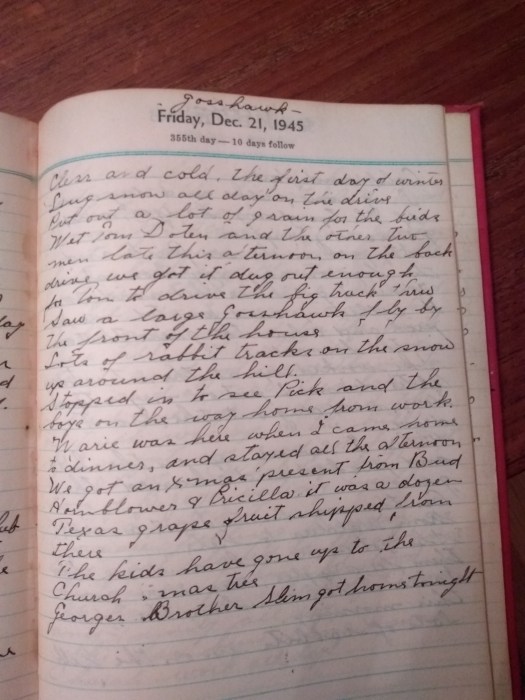 gosshawk -
Friday, Dec. 21, 1945
355th day — 10 days follow
Clear and cold, the first day of winter
snow all day on the drive
Put out a lot of grain for the birds
Met Tom Doten and the other two
men late this afternoon on the back
drive, we got it dug out enough
for Tom to drive the big truck thru
Saw a large Gosshawk fly by
the front of the house
Lots of rabbit tracks on the snow
up around the hill.
Stopped in to see Pick and the
boys on the way home from work.
Marie was here when I came home
to dinner, and stayed all the afternoon
We got an Xmas present from Bud
Hornblower & Pricilla it was a dozen
Texas grape fruit shipped from
there
The kids have gone up to the
Church mas tree
Georges Brother Slim got home tonight